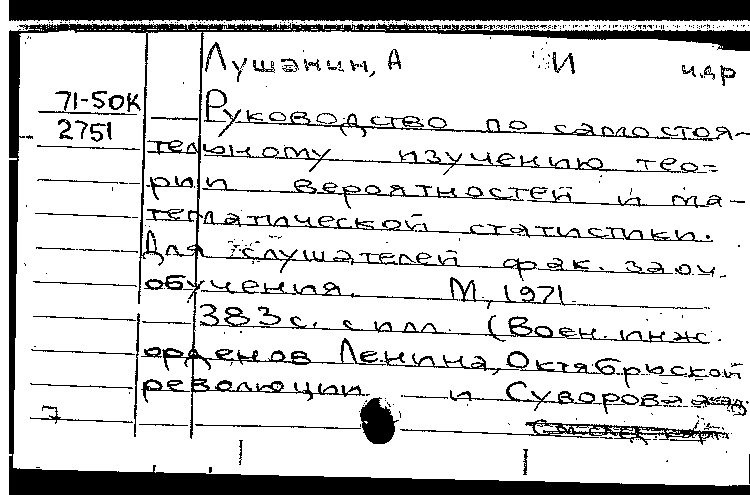 Лушанин, А И и др
71-50К
2751
Руководство по самостоя-
тельному изучению тео=
рии вероятностей и ма-
тематической статистики.
Для слушателей фак. заоч.
обучения. М, 1971
383 с. с илл. (Воен. инж.
орденов Ленина, Октябрьской
революции и Суворова акад.
7